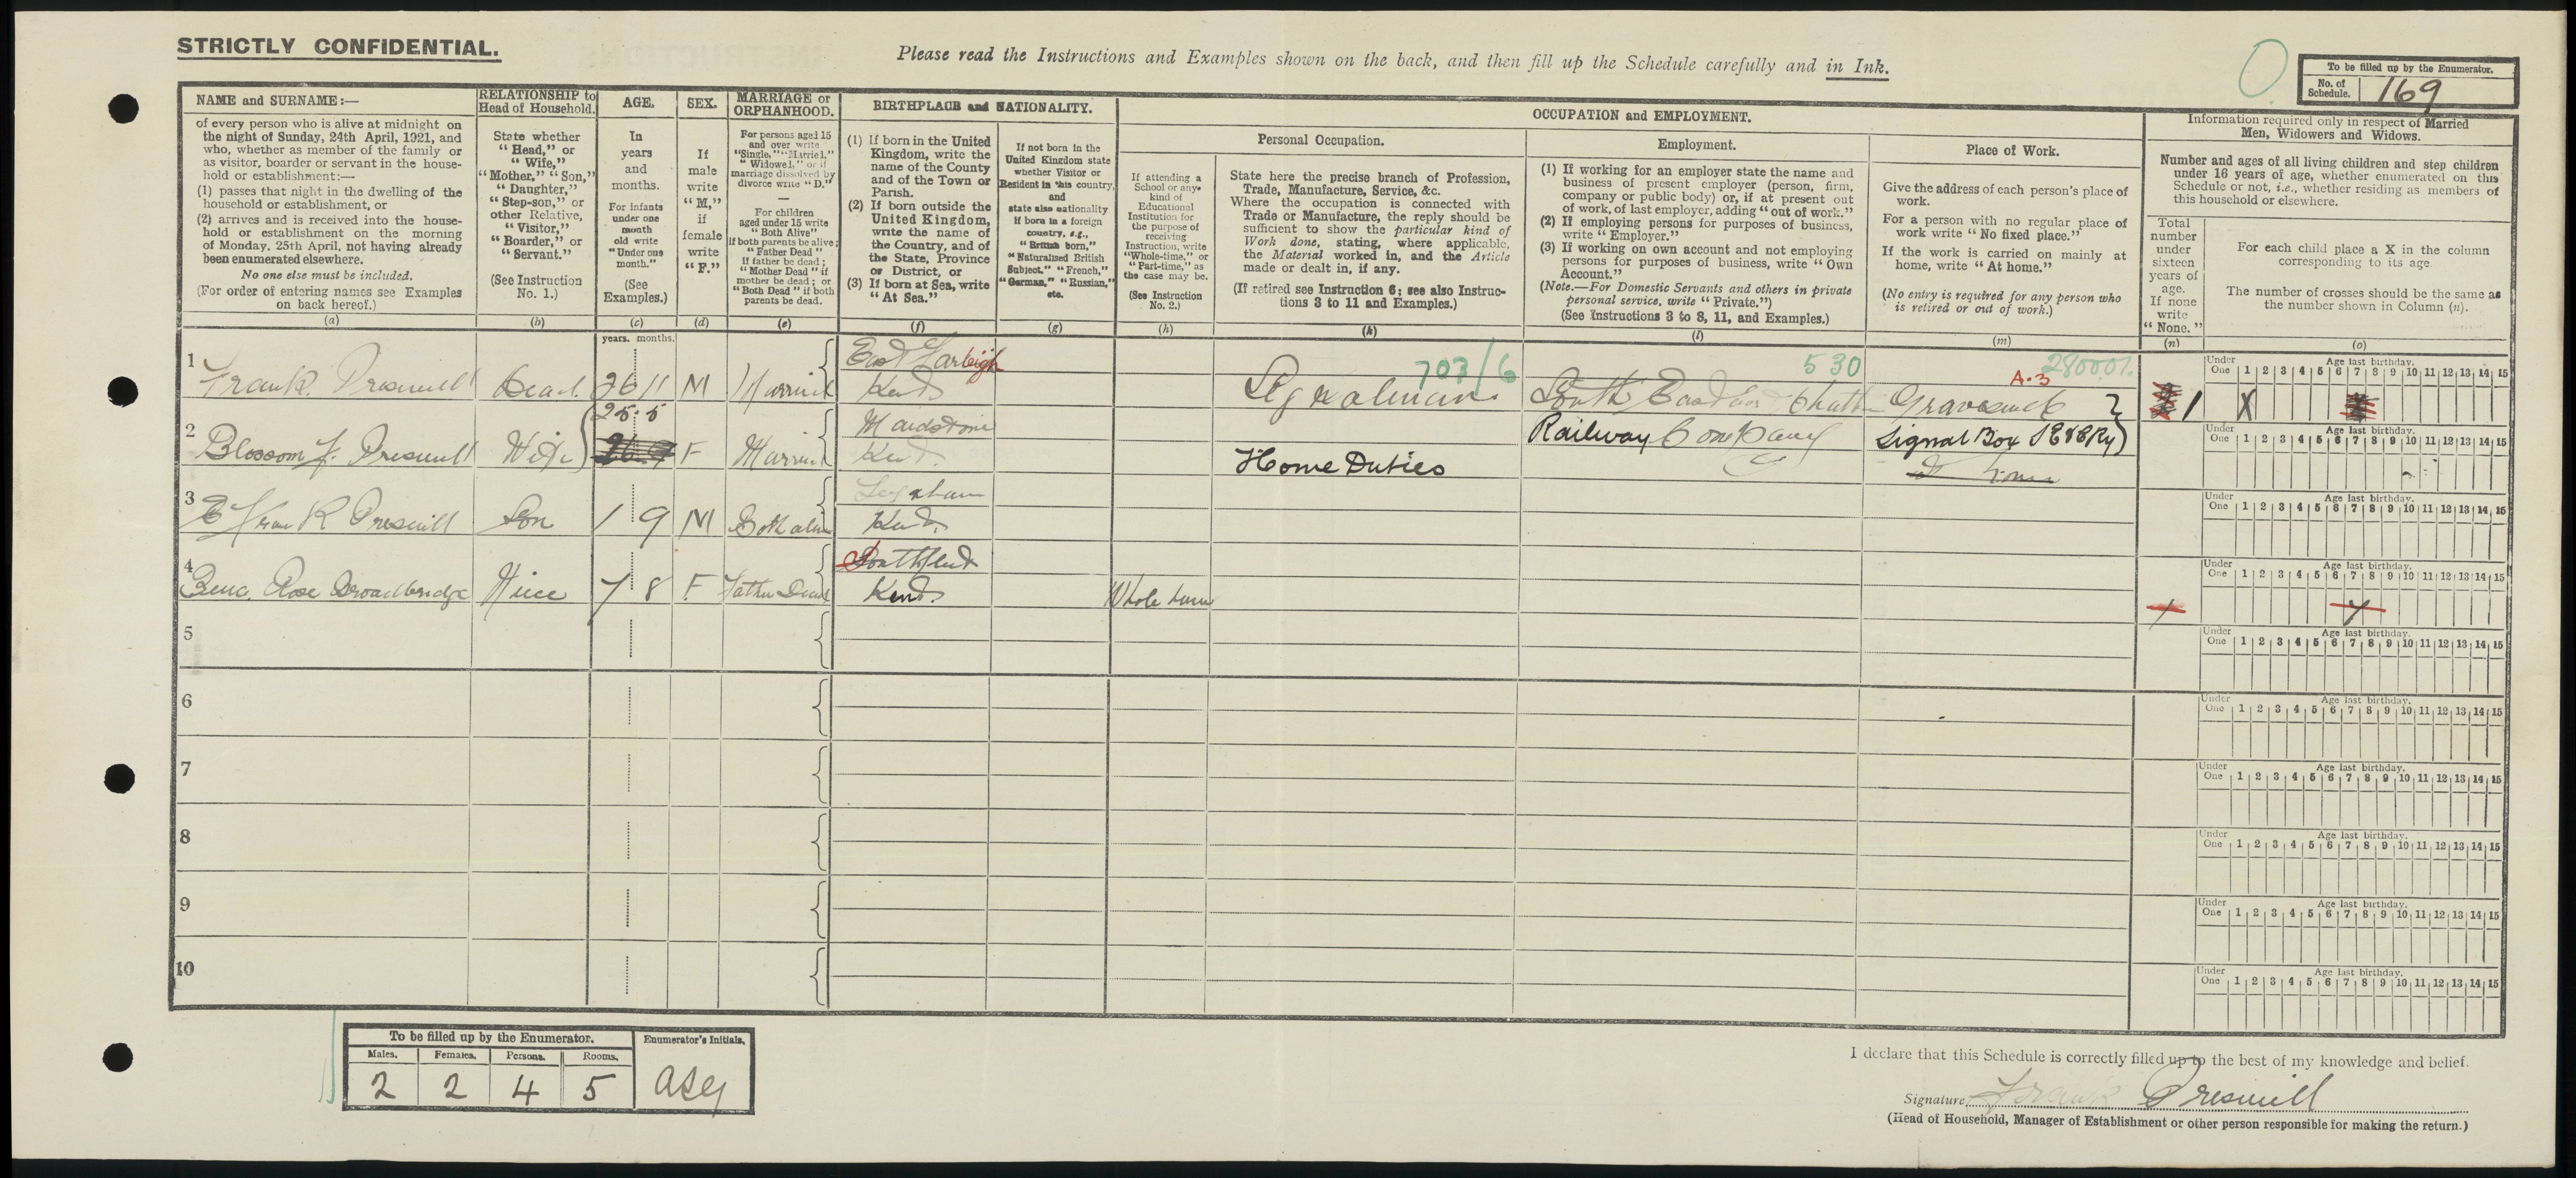 STRICTLY CONFIDENTIAL.
Please read the Instructions and Examples shown on the back, and then fill up the Schedule carefully and in Ink.
To be filled up by the Enumerator.
No. of Schedule. 169
NAME and SURNAME:—
of every person who is alive at midnight on
the night of Sunday, 24th April, 1921, and
who, whether as member of the family or
as visitor, boarder or servant in the house-
hold or establishment:—
(1) passes that night in the dwelling of the
household or establishment, or
(2) arrives and is received into the house-
hold or establishment on the morning
of Monday, 25th April, not having already
been enumerated elsewhere.
No one else must be included.
(For order of entering names see Examples
on back hereof.)
(a)
RELATIONSHIP to
Head of Household.
State whether
"Head," or
"Wife,"
"Mother," "Son,"
"Daughter,"
"Step-son," or
other Relative,
"Visitor,"
"Boarder," or
"Servant."
(See Instruction
No. 1.)
(b)
AGE.
In
years
and
months.
For infants
under one
month
old write
"Under one
month."
(See
Examples.)
(c)
years. months.
SEX.
If
male
write
"M,"
if
female
write
"F."
(d)
MARRIAGE or
ORPHANHOOD.
For persons aged 15
and over write
"Single," "Married,"
"Widowed," or if
marriage dissolved by
divorce write "D."
—
For children
aged under 15 write
"Both Alive"
if both parents be alive;
"Father Dead"
if father be dead;
"Mother Dead" if
mother be dead; or
"Both Dead" if both
parents be dead.
(e)
BIRTHPLACE and NATIONALITY.
(1) If born in the United
Kingdom, write the
name of the County
and of the Town or
Parish.
(2) If born outside the
United Kingdom,
write the name of
the Country, and of
the State, Province
or District, or
(3) If born at Sea, write
"At Sea."
(f)
If not born in the
United Kingdom state
whether Visitor or
Resident in this country,
and
state also nationality
if born in a foreign
country, e.g.,
"British born,"
"Naturalised British
Subject," "French,"
"German," "Russian,"
etc.
(g)
OCCUPATION and EMPLOYMENT.
If attending a
School or any
kind of
Educational
Institution for
the purpose of
receiving
Instruction, write
"Whole-time," or
"Part-time," as
the case may be.
(See Instruction
No. 2.)
(h)
Personal Occupation.
State here the precise branch of Profession,
Trade, Manufacture, Service, &c.
Where the occupation is connected with
Trade or Manufacture, the reply should be
sufficient to show the particular kind of
Work done, stating, where applicable,
the Material worked in, and the Article
made or dealt in, if any.
(If retired see Instruction 6; see also Instruc-
tions 3 to 11 and Examples.)
(k)
Employment.
(1) If working for an employer state the name and
business of present employer (person, firm,
company or public body) or, if at present out
of work, of last employer, adding "out of work."
(2) If employing persons for purposes of business,
write "Employer."
(3) If working on own account and not employing
persons for purposes of business, write "Own
Account."
(Note.—For Domestic Servants and others in private
personal service, write "Private.")
(See Instructions 3 to 8, 11, and Examples.)
(l)
Place of Work.
Give the address of each person's place of
work.
For a person with no regular place of
work write "No fixed place."
If the work is carried on mainly at
home, write "At home."
(No entry is required for any person who
is retired or out of work.)
(m)
Information required only in respect of Married
Men, Widowers and Widows.
Number and ages of all living children and step children
under 16 years of age, whether enumerated on this
Schedule or not, i.e., whether residing as members of
this household or elsewhere.
Total
number
under
sixteen
years of
age.
If none
write
"None."
(n)
For each child place a X in the column
corresponding to its age.
The number of crosses should be the same as
the number shown in Column (n).
(o)
Under One Age last birthday. 1 2 3 4 5 6 7 8 9 10 11 12 13 14 15
1 Frank Presnell Head 26 11 M Married East Farleigh Kent Signalman 703/6 530 A.3 Gravesend 1 X
South East and Chatham Railway Company
Signal Box SE&CRy
2 Blossom F. Presnell Wife 25 5 F Married Maidstone Kent Home Duties
3 Frank Presnell Son 1 9 M Both alive Kent
4 Rose Broadbridge Niece 7 8 F Father Dead Southfleet Kent Whole time
5
6
7
8
9
10
To be filled up by the Enumerator.
Males. Females. Persons. Rooms.
2 2 4 5
Enumerator's Initials.
I declare that this Schedule is correctly filled up to the best of my knowledge and belief.
Signature Frank Presnell
(Head of Household, Manager of Establishment or other person responsible for making the return.)